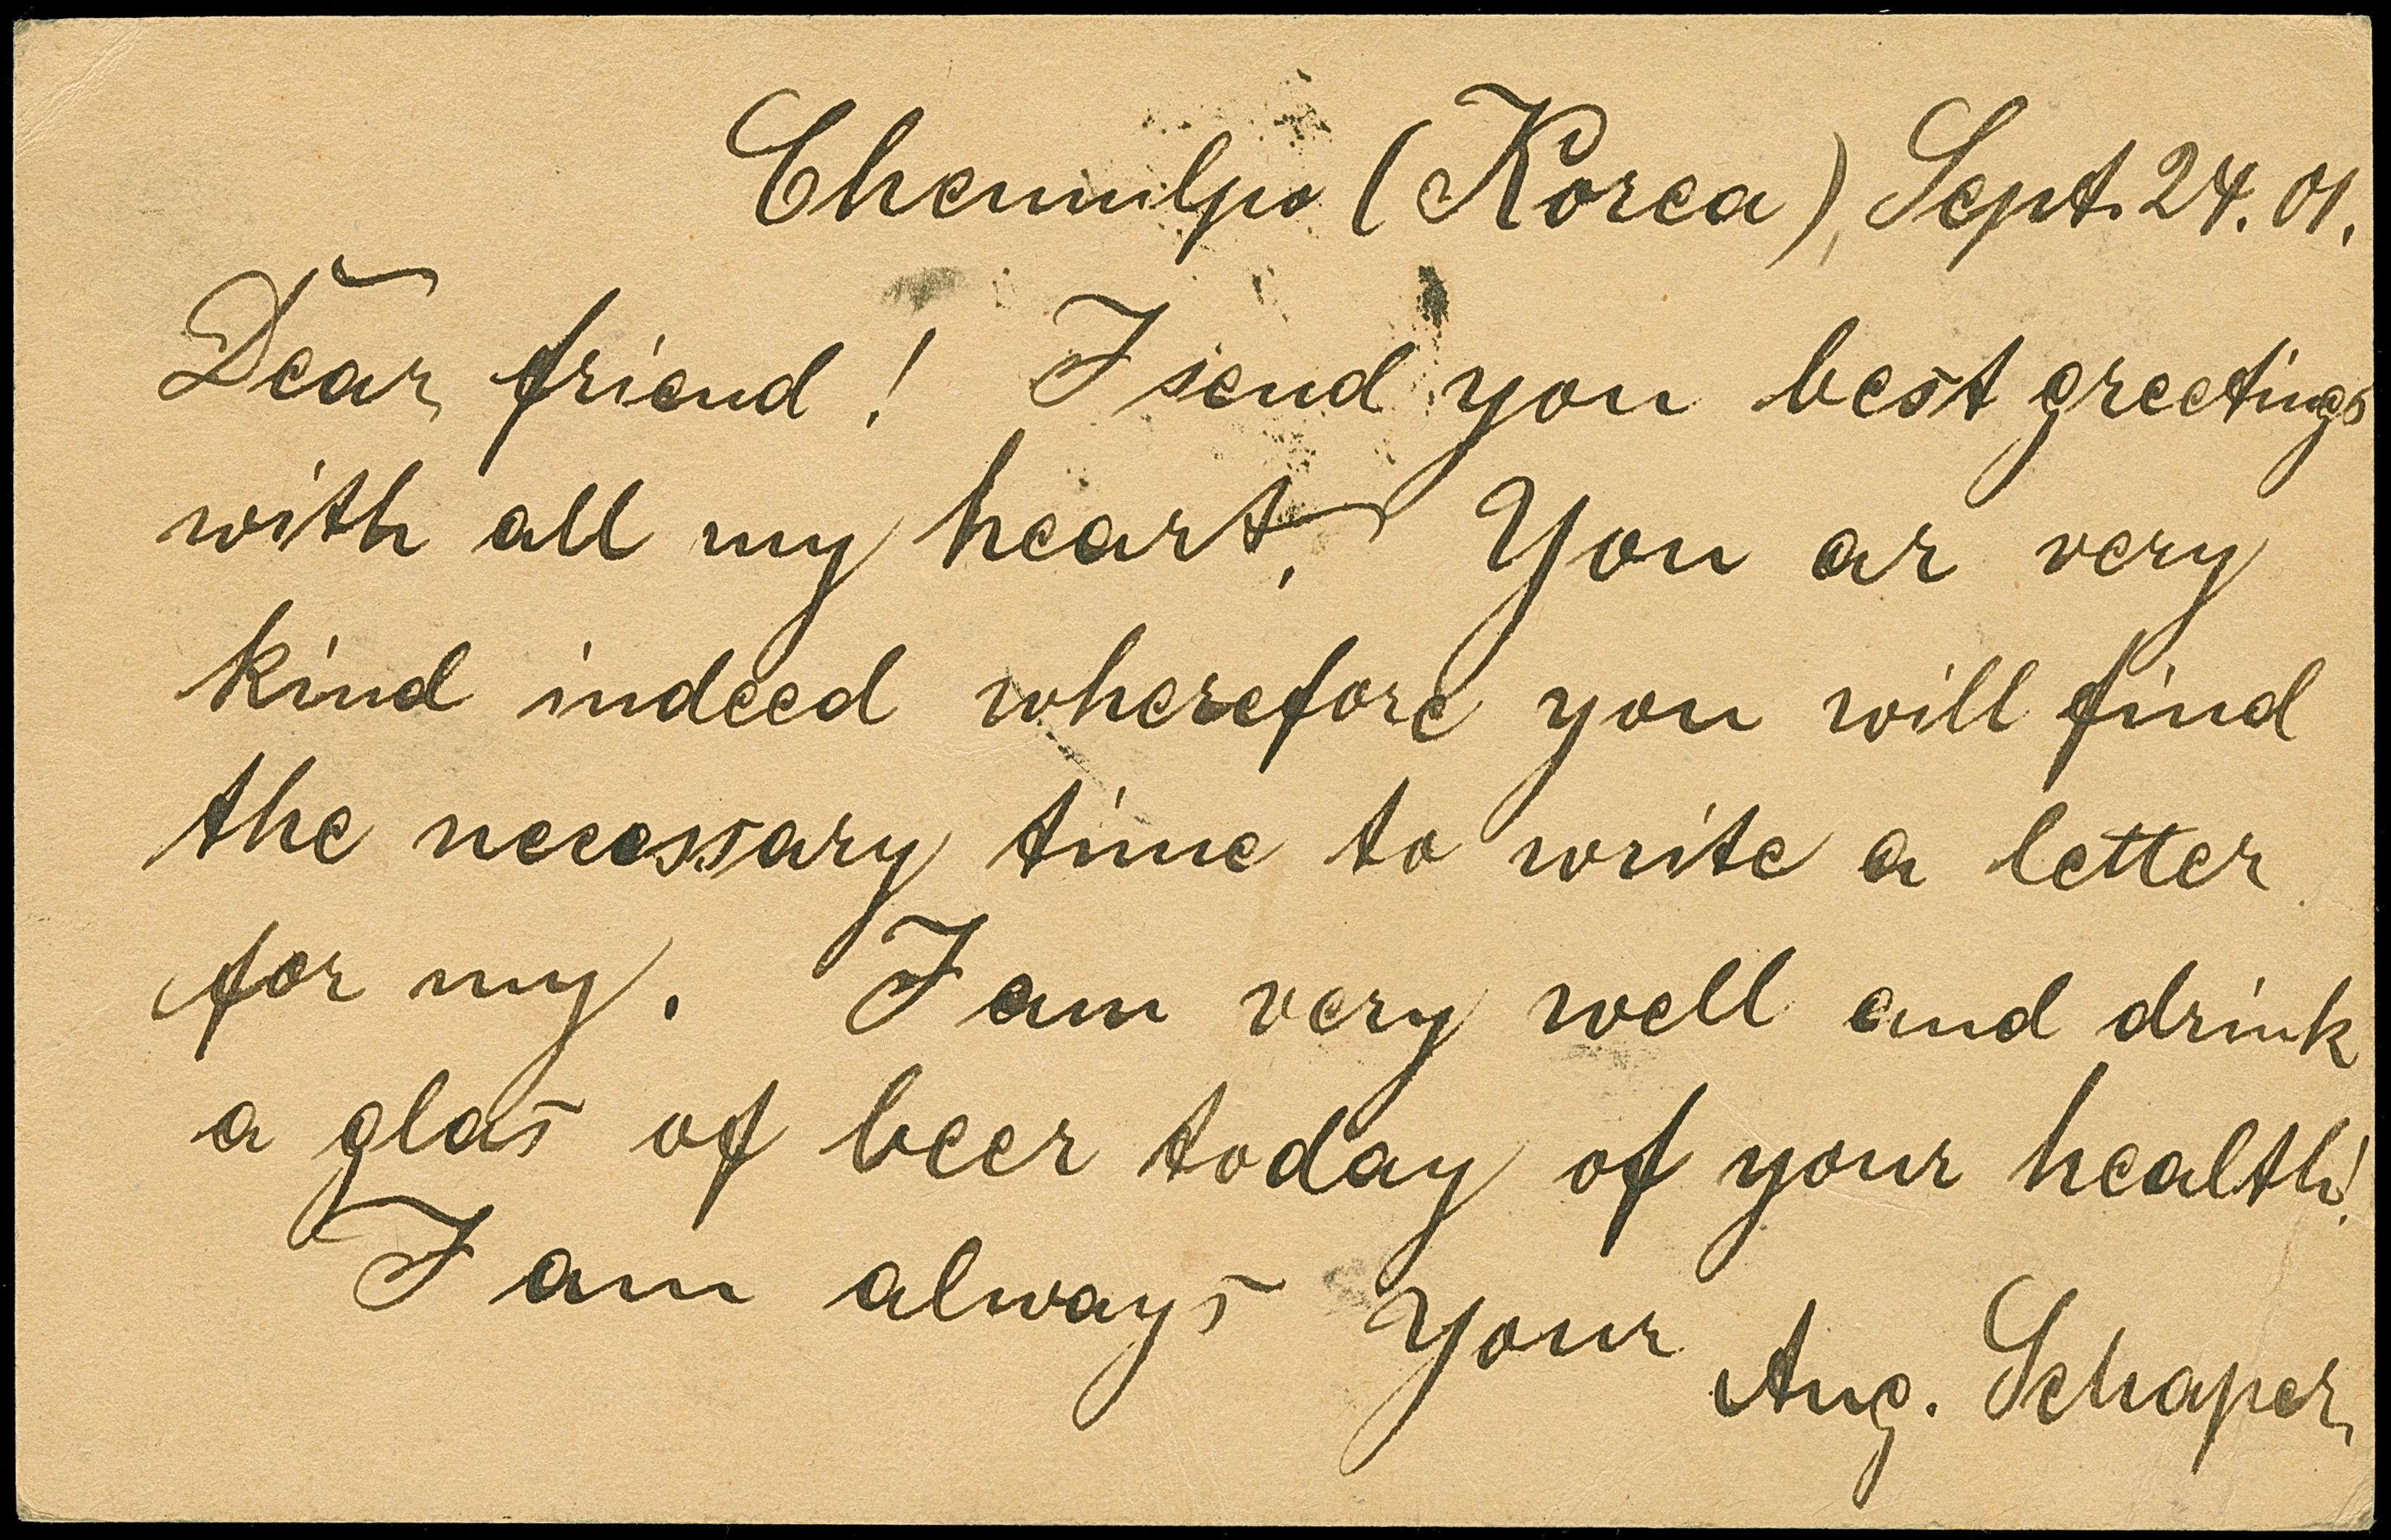 Chemulpo (Korea), Sept. 24. 01.
Dear friend! I send you best greetings
with all my heart! You ar very
kind indeed wherefore you will find
the necessary time to write a letter
for my. I am very well and drink
a glas of beer today of your health!
I am always Your
Aug. Schaper